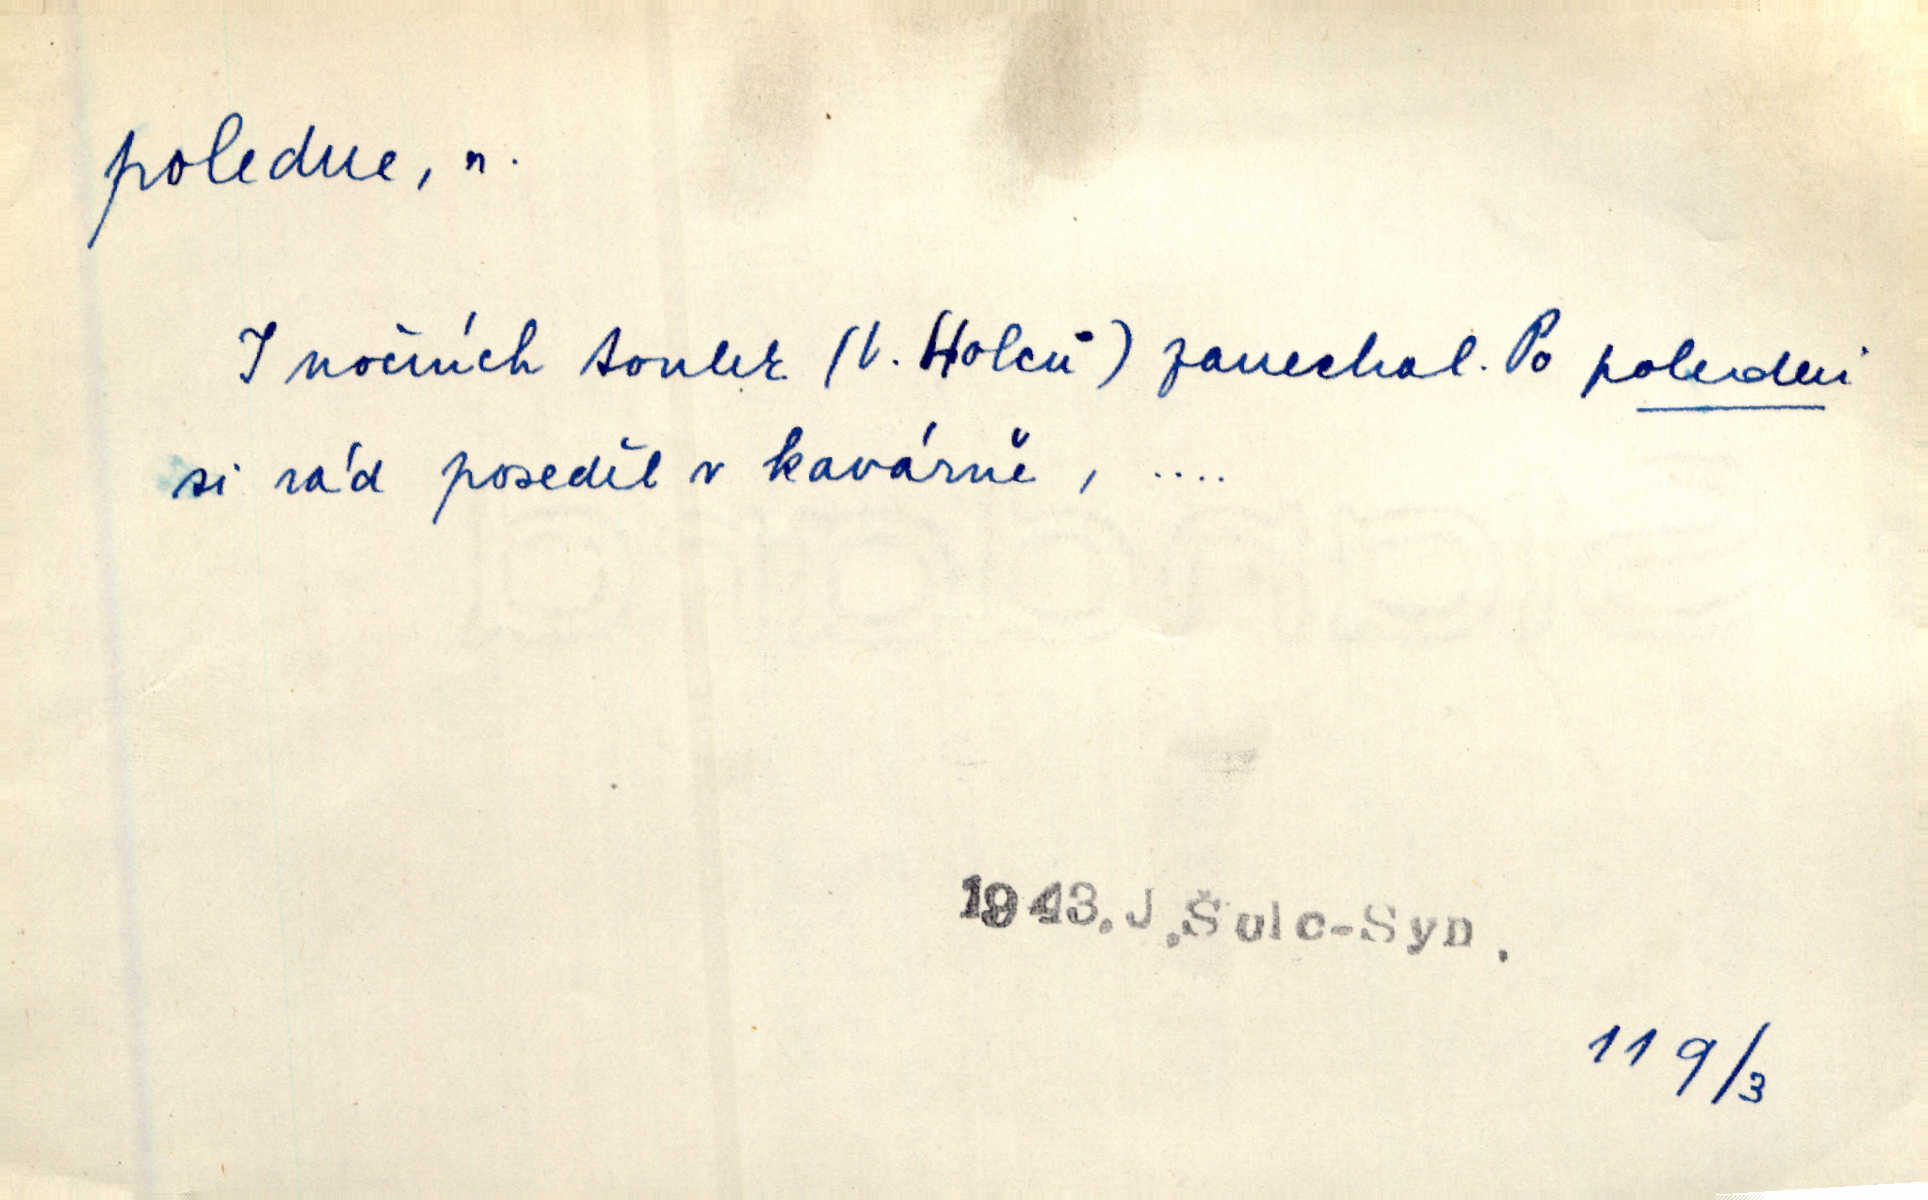 poledne, n.
I nočních toulek (V. Holců) zanechal. Po poledni
si rád poseděl v kavárně, ....
1943.J.Šulc-Syn.
119/3